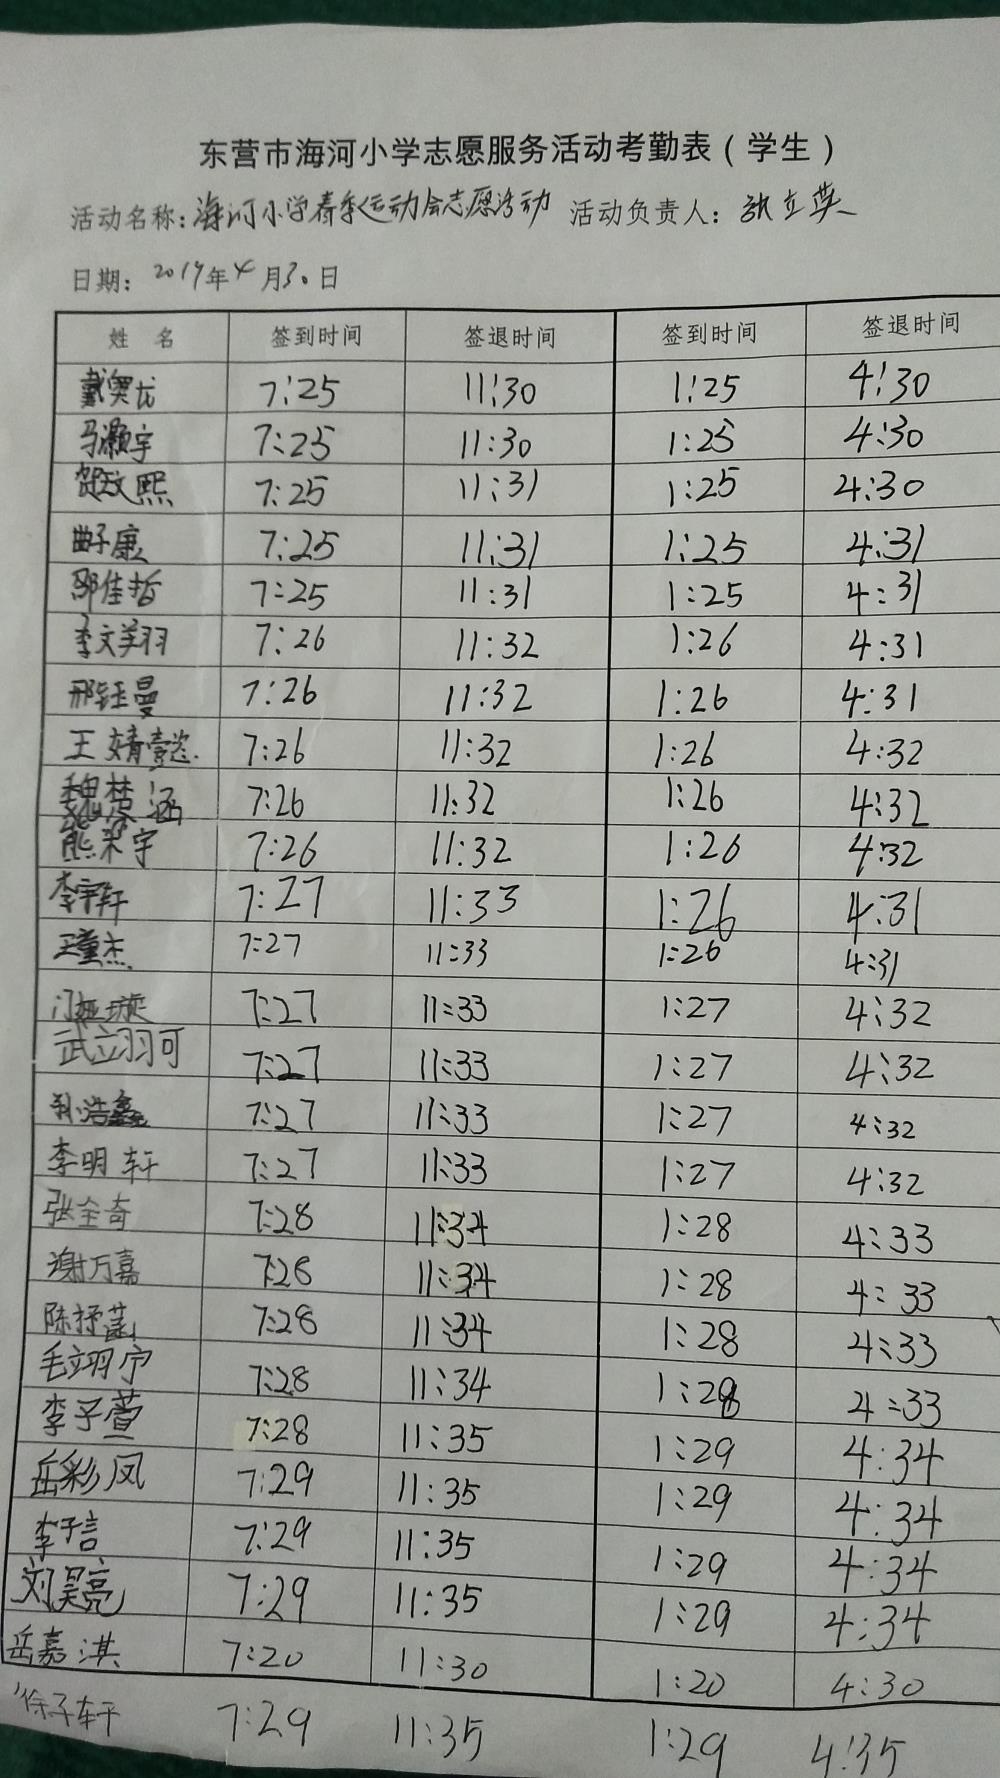 东营市海河小学志愿服务活动考勤表（学生）
活动名称：海河小学春季运动会志愿活动 活动负责人：张立英
日期：2019年4月30日
姓 名 签到时间 签退时间 签到时间 签退时间
戴奥龙 7:25 11:30 1:25 4:30
马灏宇 7:25 11:30 1:25 4:30
贺政熙 7:25 11:31 1:25 4:30
曲子康 7:25 11:31 1:25 4:31
邵佳哲 7:25 11:31 1:25 4:31
李文翔 7:26 11:32 1:26 4:31
邢钰曼 7:26 11:32 1:26 4:31
王婧懿 7:26 11:32 1:26 4:32
魏梦涵 7:26 11:32 1:26 4:32
熊梁宇 7:26 11:32 1:26 4:32
李宇轩 7:27 11:33 1:26 4:31
王童杰 7:27 11:33 1:26 4:31
门娅璇 7:27 11:33 1:27 4:32
武立羽可 7:27 11:33 1:27 4:32
孙浩鑫 7:27 11:33 1:27 4:32
李明轩 7:27 11:33 1:27 4:32
张全奇 7:28 11:34 1:28 4:33
谢万嘉 7:28 11:34 1:28 4:33
陈抒菡 7:28 11:34 1:28 4:33
毛翊宁 7:28 11:34 1:28 4:33
李子萱 7:28 11:35 1:29 4:34
岳彩凤 7:29 11:35 1:29 4:34
李子言 7:29 11:35 1:29 4:34
刘昊亮 7:29 11:35 1:29 4:34
岳嘉淇 7:20 11:30 1:20 4:30
徐子轩 7:29 11:35 1:29 4:35